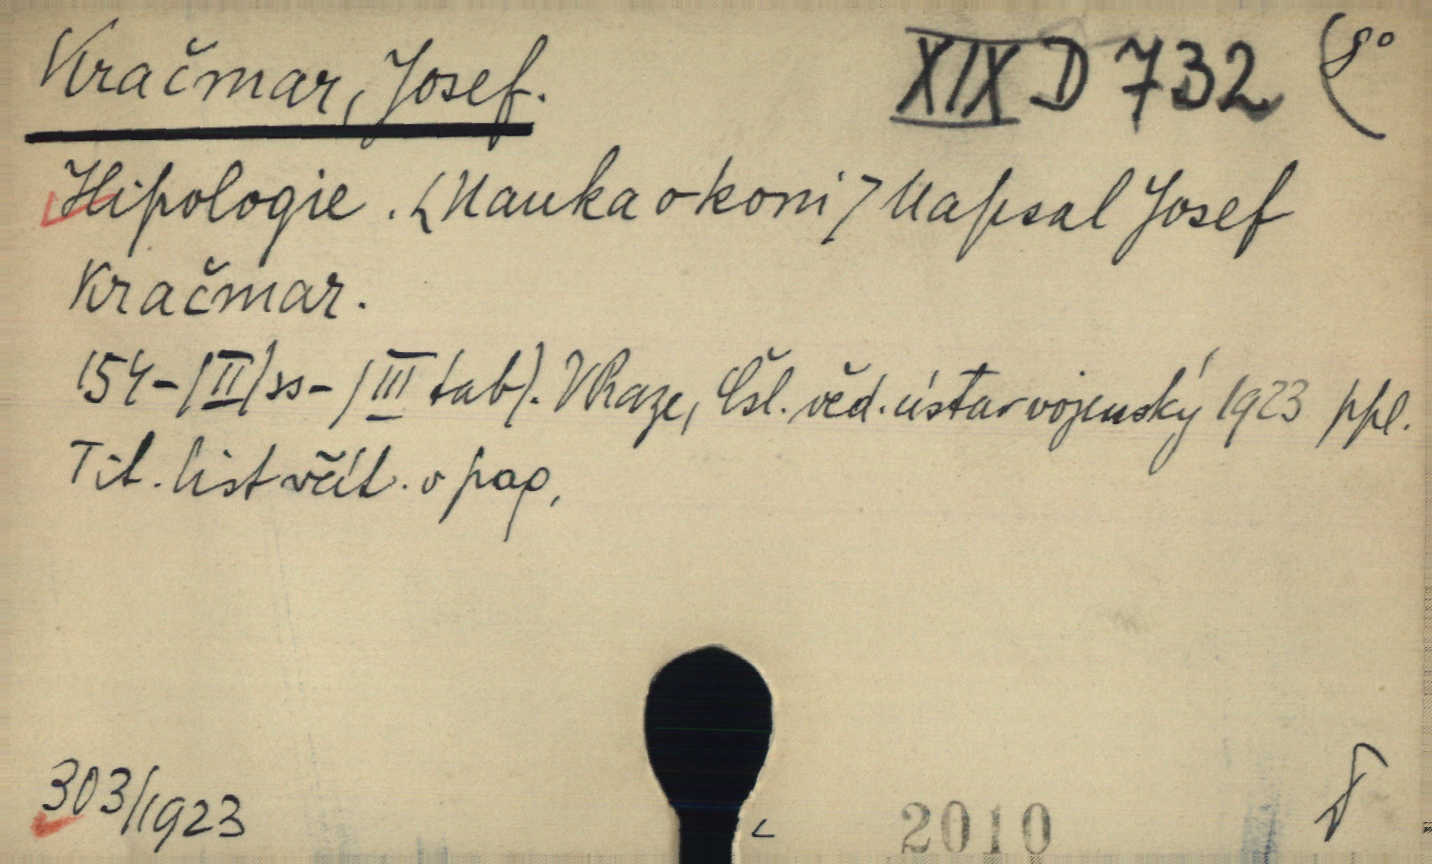 Kračmar, Josef. XIX D 732 8°
Hipologie. <Nauka o koni> Napsal Josef
Kračmar.
154-(II)ss-(III tab). V Praze, Čsl. věd. ústav vojenský 1923 ppl.
Tit. list včít. v pag.
303/1923
2010